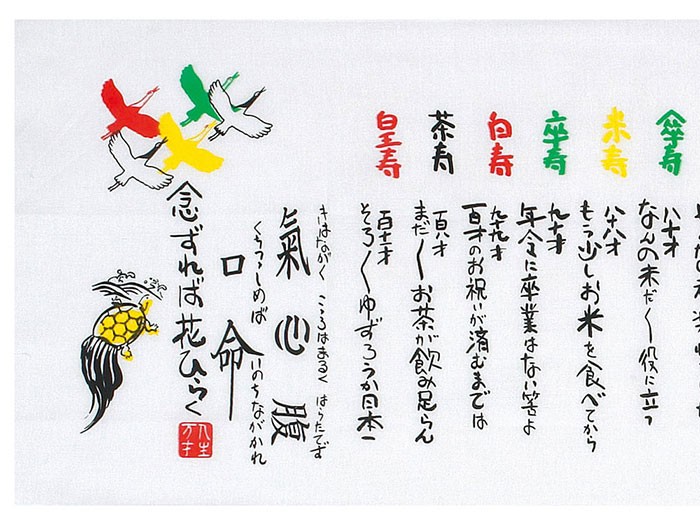 傘寿
八十才
なんの未だ〱役に立つ
米寿
八十八才
もう少しお米を食べてから
卒寿
九十才
年令に卒業はない筈よ
白寿
九十九才
百才のお祝いが済むまでは
茶寿
百八才
まだ〱お茶が飲み足らん
皇寿
百十一才
そろ〱ゆずろうか日本一
きはながく こころはまるく はらたてず
氣心腹
口命
くちつつしめば いのちながかれ
念ずれば花ひらく
人生
万才